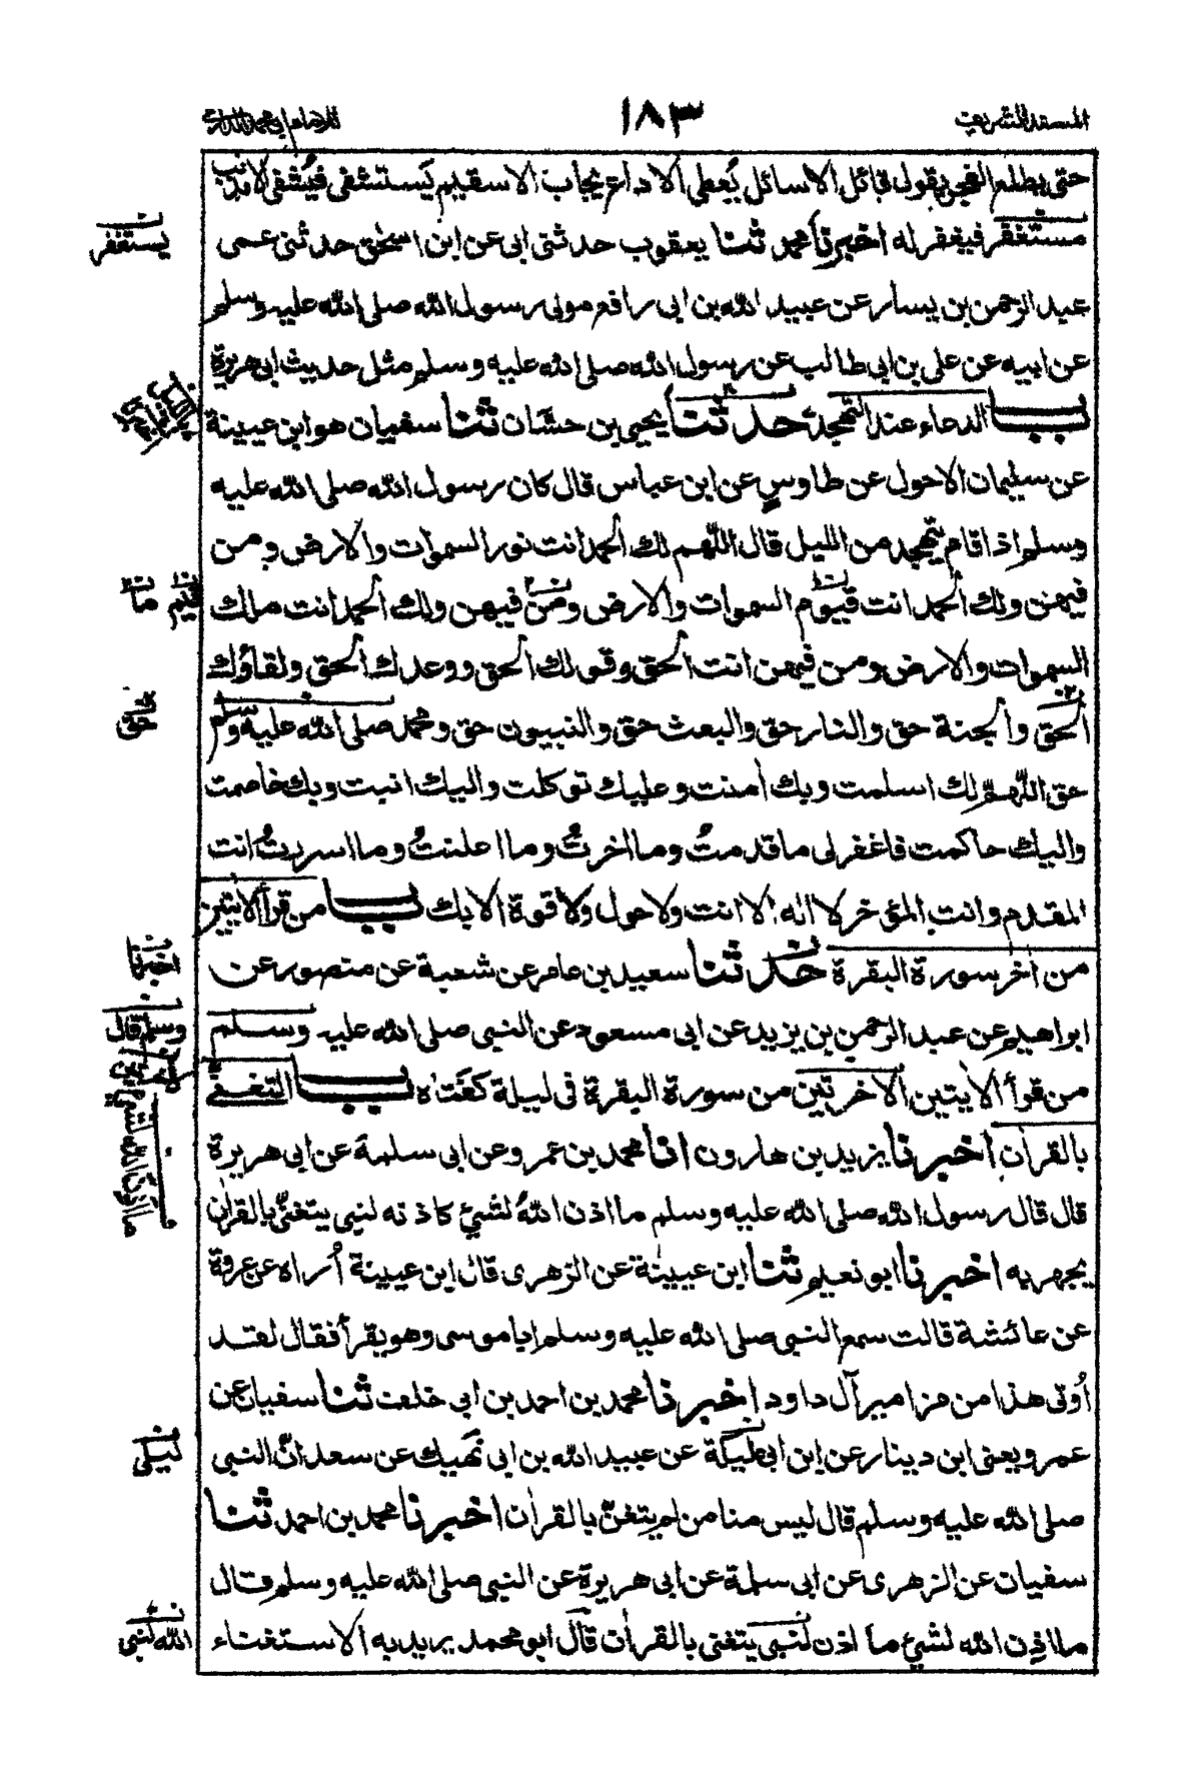 المسند الشريف
١٨٣
للامام ابي محمد الدارمي
حتى يطلع الفجر يقول قائل الا سائل يُعطى الا داع يجاب الا سقيم يَستشفى فيُشفى الا مذنب
مستغفر فيغفر له اخبرنا محمد ثنا يعقوب حدثنى ابى عن ابن اسحٰق حدثنى عمى
يستغفر
عبد الرحمن بن يسار عن عبيد الله بن ابى رافع مولى رسول الله صلى الله عليه وسلم
عن ابيه عن على بن ابى طالب عن رسول الله صلى الله عليه وسلم مثل حديث ابى هريرة
باب الدعاء عند التهجد حدثنا يحيى بن حسّان ثنا سفيان هو ابن عيينة
عن سليمان الاحول عن طاوسٍ عن ابن عباس قال كان رسول الله صلى الله عليه
وسلم اذا قام يتهجد من الليل قال اللّٰهم لك الحمد انت نور السموات والارض ومن
فيهن ولك الحمد انت قيوم السموات والارض ومن فيهن ولك الحمد انت ملك
قيم
ما
السموات والارض ومن فيهن انت الحق وقولك الحق ووعدك الحق ولقاؤك
الحق والجنة حق والنار حق والبعث حق والنبيون حق ومحمد صلى الله عليه وسلم
حق
حق اللّٰهمّ لك اسلمت وبك اٰمنت وعليك توكلت واليك انبت وبك خاصمت
واليك حاكمت فاغفرلى ما قدمتُ وما اخرتُ وما اعلنتُ وما اسررتُ انت
المقدم وانت المؤخر لا اله الا انت ولا حول ولا قوة الا بك باب من قرأ الاٰيتين
من اٰخر سورة البقرة حدثنا سعيد بن عامر عن شعبة عن منصور عن
اخبرنا
ابراهيم عن عبد الرحمن بن يزيد عن ابى مسعود عن النبى صلى الله عليه وسلم
وسلم قال
من قرأ الاٰيتين الاٰخرتين من سورة البقرة فى ليلة كفَتَاه باب التغنى
بالقراٰن اخبرنا يزيد بن هارون انا محمد بن عمرو عن ابى سلمة عن ابى هريرة
قال قال رسول الله صلى الله عليه وسلم ما اذن اللهُ لشيء كاذنه لنبى يتغنّى بالقراٰن
يجهر به اخبرنا ابو نعيم ثنا ابن عيينة عن الزهرى قال ابن عيينة اُراه عن عروة
عن عائشة قالت سمع النبى صلى الله عليه وسلم ابا موسى وهو يقرأ فقال لقد
اُوتى هذا من مزامير آل داود اخبرنا محمد بن احمد بن ابى خلف ثنا سفيان عن
عمرو يعنى ابن دينار عن ابن ابى مليكة عن عبيد الله بن ابى نَهيك عن سعد انّ النبى
صلى الله عليه وسلم قال ليس منا من لم يتغنّ بالقراٰن اخبرنا محمد بن احمد ثنا
سفيان عن الزهرى عن ابى سلمة عن ابى هريرة عن النبى صلى الله عليه وسلم قال
ما اذن الله لشيء ما اذن لنبى يتغنى بالقراٰن قال ابو محمد يريد به الاستغناء
الله لنبى